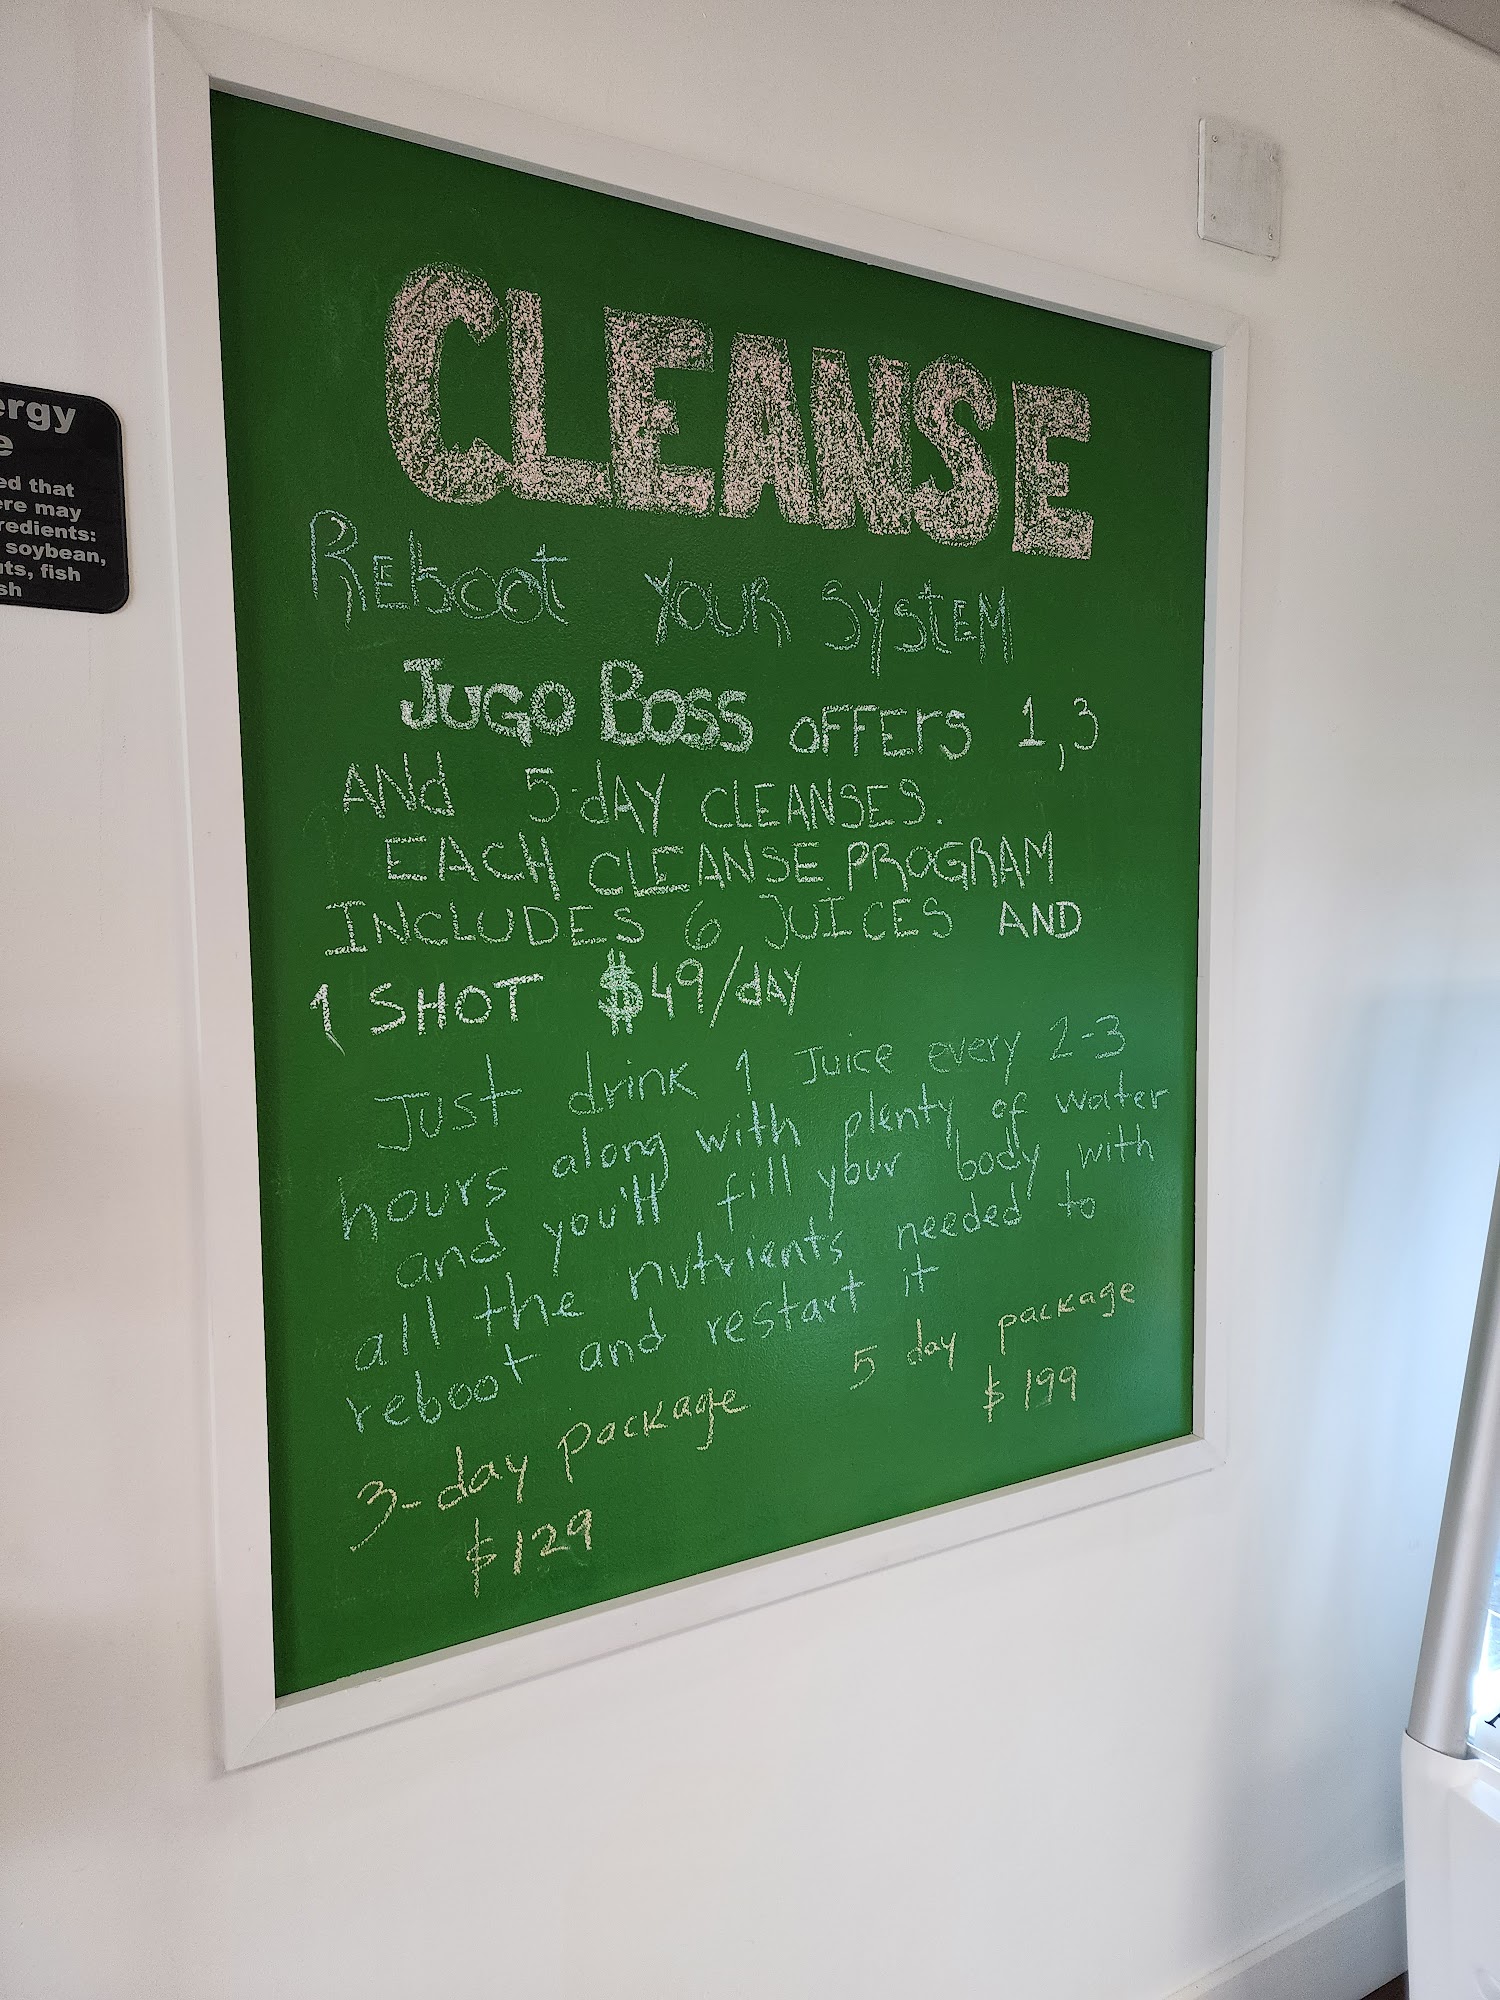 ergy
e
ed that
ere may
redients:
soybean,
uts, fish
sh
CLEANSE
REbOOt YOUR SYStEM
JUGO BOSS OFFERS 1,3
ANd 5-dAY CLEANSES.
EACH CLEANSE PROGRAM
INCLUDES 6 JUICES AND
1 SHOT $49/dAY
Just drink 1 Juice every 2-3
hours along with plenty of water
and you'll fill your body with
all the nutrients needed to
reboot and restart it
3-day package
$129
5 day package
$199